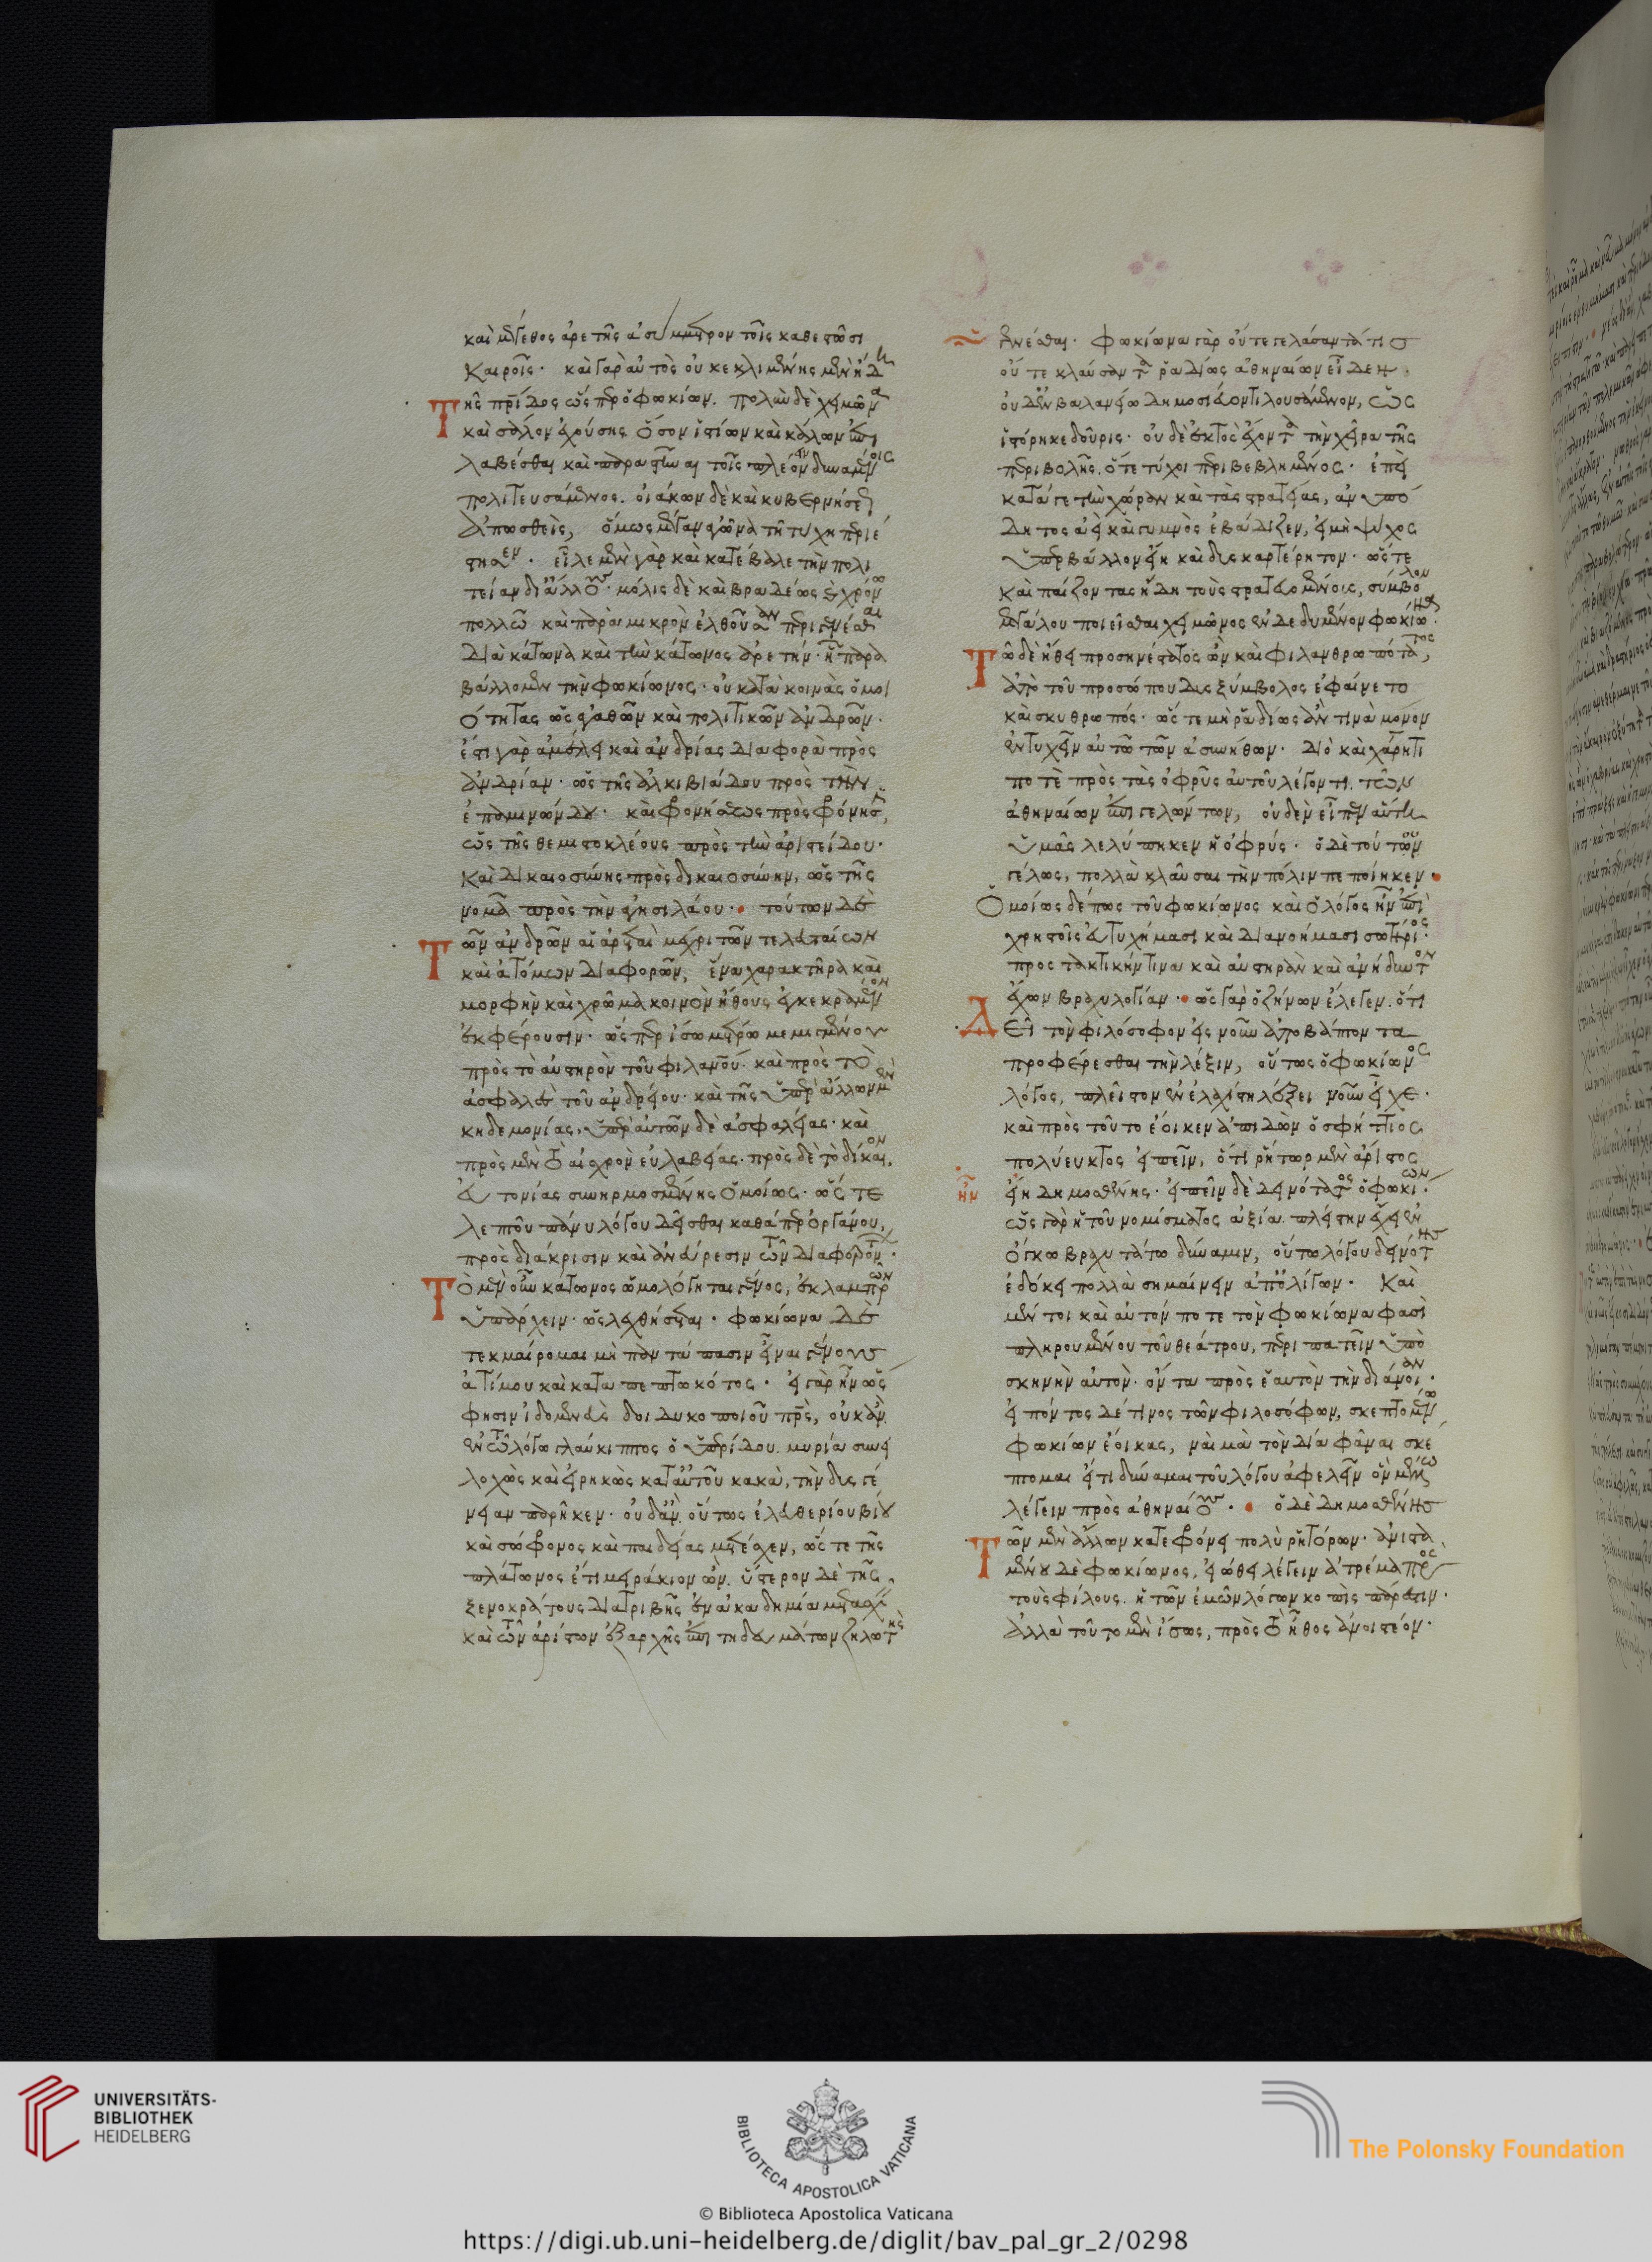 καὶ μέγεθος ἀρετῆς ἀσύμμετρον τοῖς καθεστῶσι
Καιροῖς· καὶ γὰρ αὐτὸς οὐ κεκλιμένης μὲν ἤδη
Τῆς πατρίδος ὥσπερ ὁ φωκίων. πολὺν δὲ χειμῶνα
καὶ σάλον ἐχούσης ὅσον ἱστίων καὶ κάλων ἐπι
λαβέσθαι καὶ παραστῆναι τοῖς πλέον δυναμένοις
πολιτευσάμενος. οἰάκων δὲ καὶ κυβερνήσεως
ἀπωσθεὶς, ὅμως μέγαν ἀγῶνα τῇ τύχῃ περιέ
στησεν· εἷλε μὲν γαρ καὶ κατέβαλε τὴν πολι
τείαν δι' ἄλλους· μόλις δὲ καὶ βραδέως καὶ χρόνῳ
πολλῷ καὶ παρὰ μικρὸν ἐλθοῦσαν περιγενέσθαι
Διὰ κάτωνα καὶ τὴν κάτωνος ἀρετήν· ἧ παρα
βάλλομεν τὴν φωκίωνος· οὐ κατὰ κοινὰς ὁμοι
ότητας ὡς ἀγαθῶν καὶ πολιτικῶν ἀνδρῶν·
ἔστι γὰρ ἀμέλει καὶ ἀνδρίας διαφορὰ πρὸς
ἀνδρίαν· ὡς τῆς ἀλκιβιάδου πρὸς τὴν
ἐπαμινώνδου· καὶ φρονήσεως πρὸς φρόνησιν,
ὡς τῆς θεμιστοκλέους πρὸς τὴν ἀριστείδου·
Καὶ δικαιοσύνης πρὸς δικαιοσύνην, ὡς τῆς
νομᾶ πρὸς τὴν ἀγησιλάου· τούτων δὲ
Τῶν ἀνδρῶν αἱ ἀρεταὶ μέχρι τῶν τελευταίων
καὶ ἀτόμων διαφορῶν, ἕνα χαρακτῆρα καὶ
μορφὴν καὶ χρῶμα κοινὸν ἤθους ἐγκεκραμένον
ἐκφέρουσιν· ὥσπερ ἴσῳ μέτρῳ μεμιγμένου
πρὸς τὸ αὐστηρὸν τοῦ φιλανθρώπου· καὶ πρὸς τὸ
ἀσφαλὲς τοῦ ἀνδρείου· καὶ τῆς ὑπὲρ ἄλλων μὲν
κηδεμονίας, ὑπὲρ αὐτῶν δὲ ἀσφαλείας· καὶ
πρὸς μὲν τὸ αἰσχρὸν εὐλαβείας· πρὸς δὲ τὸ δίκαιον,
εὐτονίας συνηρμοσμένης ὁμοίως· ὥστε
λεπτοῦ πάνυ λόγου δεῖσθαι καθάπερ ὀργάνου,
πρὸς διάκρισιν καὶ ἀνεύρεσιν τῶν διαφερόντων·
Τὸ μὲν οὖν κάτωνος ὡμολόγηται γένος, ἐκ λαμπρῶν
ὑπάρχειν· ὡς λεχθήσεται· φωκίωνα δὲ
τεκμαίρομαι μὴ παντάπασιν εἶναι γένους
ἀτίμου καὶ καταπεπτωκότος· εἰ γὰρ ἦν ὥς
φησιν ἰδομενεὺς δοιδυκοποιοῦ πατρὸς, οὐκ ἂν
ἐν τῷ λόγῳ γλαύκιππος ὁ ὑπερίδου. μυρία συνει
λοχὼς καὶ εἰρηκὼς κατ' αὐτοῦ κακὰ, τὴν δυσγέ
νειαν παρῆκεν· οὐδ' ἂν οὕτως ἐλευθερίου βίου
καὶ σώφρονος καὶ παιδείας μετέσχεν, ὥστε τῆς
πλάτωνος ἔτι μειράκιον ὢν. ὕστερον δὲ τῆς
ξενοκράτους διατριβῆς ἐν ἀκαδημίᾳ μετασχεῖν
καὶ τῶν ἀρίστων ἐξ ἀρχῆς ἐπιτηδευμάτων ζηλωτὴς
γενέσθαι· Φωκίωνα γὰρ οὔτε γελάσαντά τις
οὔτε κλαύσαντα ῥαδίως ἀθηναίων εἶδεν.
οὐδ' ἐν βαλανείῳ δημοσιεύοντι λουσάμενον, ὡς
ἱστόρηκε δοῦρις· οὐδὲ ἐκτὸς ἔχοντα τὴν χεῖρα τῆς
περιβολῆς. ὅτε τύχοι περιβεβλημένος· ἐπεὶ
κατά γε τὴν χώραν καὶ τὰς στρατείας, ἀνυπό
δητος ἀεὶ καὶ γυμνὸς ἐβάδιζεν, εἰ μὴ ψύχος
ὑπερβάλλον εἴη καὶ δυσκαρτέρητον· ὥστε
καὶ παίζοντας ἤδη τοὺς στρατευομένους, σύμβολον
μεγάλου ποιεῖσθαι χειμῶνος ἐνδεδυμένον φωκίωνα·
Τῷ δὲ ἤθει προσηνέστατος ὢν καὶ φιλανθρωπότατος,
ἀπὸ τοῦ προσώπου δυσξύμβολος ἐφαίνετο
καὶ σκυθρωπός· ὥστε μὴ ῥαδίως ἄν τινα μόνον
ἐντυχεῖν αὐτῷ τῶν ἀσυνήθων· διὸ καὶ χάρητι
ποτὲ πρὸς τὰς ὀφρῦς αὐτοῦ λέγοντι. τῶν
ἀθηναίων ἐπιγελώντων, οὐδὲν εἶπεν αὕτη
ὑμᾶς λελύπηκεν ἡ ὀφρύς· ὁ δὲ τούτων
γέλως, πολλὰ κλαῦσαι τὴν πόλιν πεποίηκεν·
Ὁμοίως δέ πως τοῦ φωκίωνος καὶ ὁ λόγος ἦν ἐπὶ
χρηστοῖς εὐτυχήμασι καὶ διανοήμασι σωτήριος·
προστακτικήν τινα καὶ αὐστηρὰν καὶ ἀνήδυντον
ἔχων βραχυλογίαν· ὡς γὰρ ὁ ζήνων ἔλεγεν. ὅτι
Δεῖ τὸν φιλόσοφον εἰς νοῦν ἀποβάπτοντα
προφέρεσθαι τὴν λέξιν, οὕτως ὁ φωκίωνος
λόγος, πλεῖστον ἐν ἐλαχίστῃ λέξει νοῦν εἶχε·
καὶ πρὸς τοῦτο ἔοικεν ἀπιδὼν ὁ σφήττιος
πολύευκτος εἰπεῖν, ὅτι ῥήτωρ μὲν ἄριστος
εἴη δημοσθένης· εἰπεῖν δὲ δεινότατος ὁ φωκίων·
ὡς γὰρ ἡ τοῦ νομίσματος ἀξία πλείστην ἔχει ἐν
ὄγκῳ βραχυτάτῳ δύναμιν, οὕτω λόγου δεινότης
ἐδόκει πολλὰ σημαίνειν ἀπ' ὀλίγων· Καὶ
μέντοι καὶ αὐτόν ποτε τὸν φωκίωνα φασὶ
πληρουμένου τοῦ θεάτρου, περιπατεῖν ὑπὸ
σκηνὴν αὐτὸν· ὄντα πρὸς ἑαυτὸν τὴν διάνοιαν·
εἰπόντος δέ τινος τῶν φιλοσόφων, σκεπτομένῳ
φωκίων ἔοικας, ναὶ μὰ τὸν Δία φᾶναι σκέ
πτομαι εἴ τι δύναμαι τοῦ λόγου ἀφελεῖν ὃν μέλλω
λέγειν πρὸς ἀθηναίους· ὁ δὲ Δημοσθένης
Τῶν μὲν ἄλλων κατεφρόνει πολὺ ῥητόρων· ἀνιστα
μένου δὲ φωκίωνος, εἰώθει λέγειν ἀτρέμα πρὸς
τοὺς φίλους. ἡ τῶν ἐμῶν λόγων κοπὶς πάρεστιν·
Ἀλλὰ τοῦτο μὲν ἴσως, πρὸς τὸ ἦθος ἀνοιστέον·
UNIVERSITÄTS-
BIBLIOTHEK
HEIDELBERG
BIBLIOTECA APOSTOLICA VATICANA
The Polonsky Foundation
© Biblioteca Apostolica Vaticana
https://digi.ub.uni-heidelberg.de/diglit/bav_pal_gr_2/0298